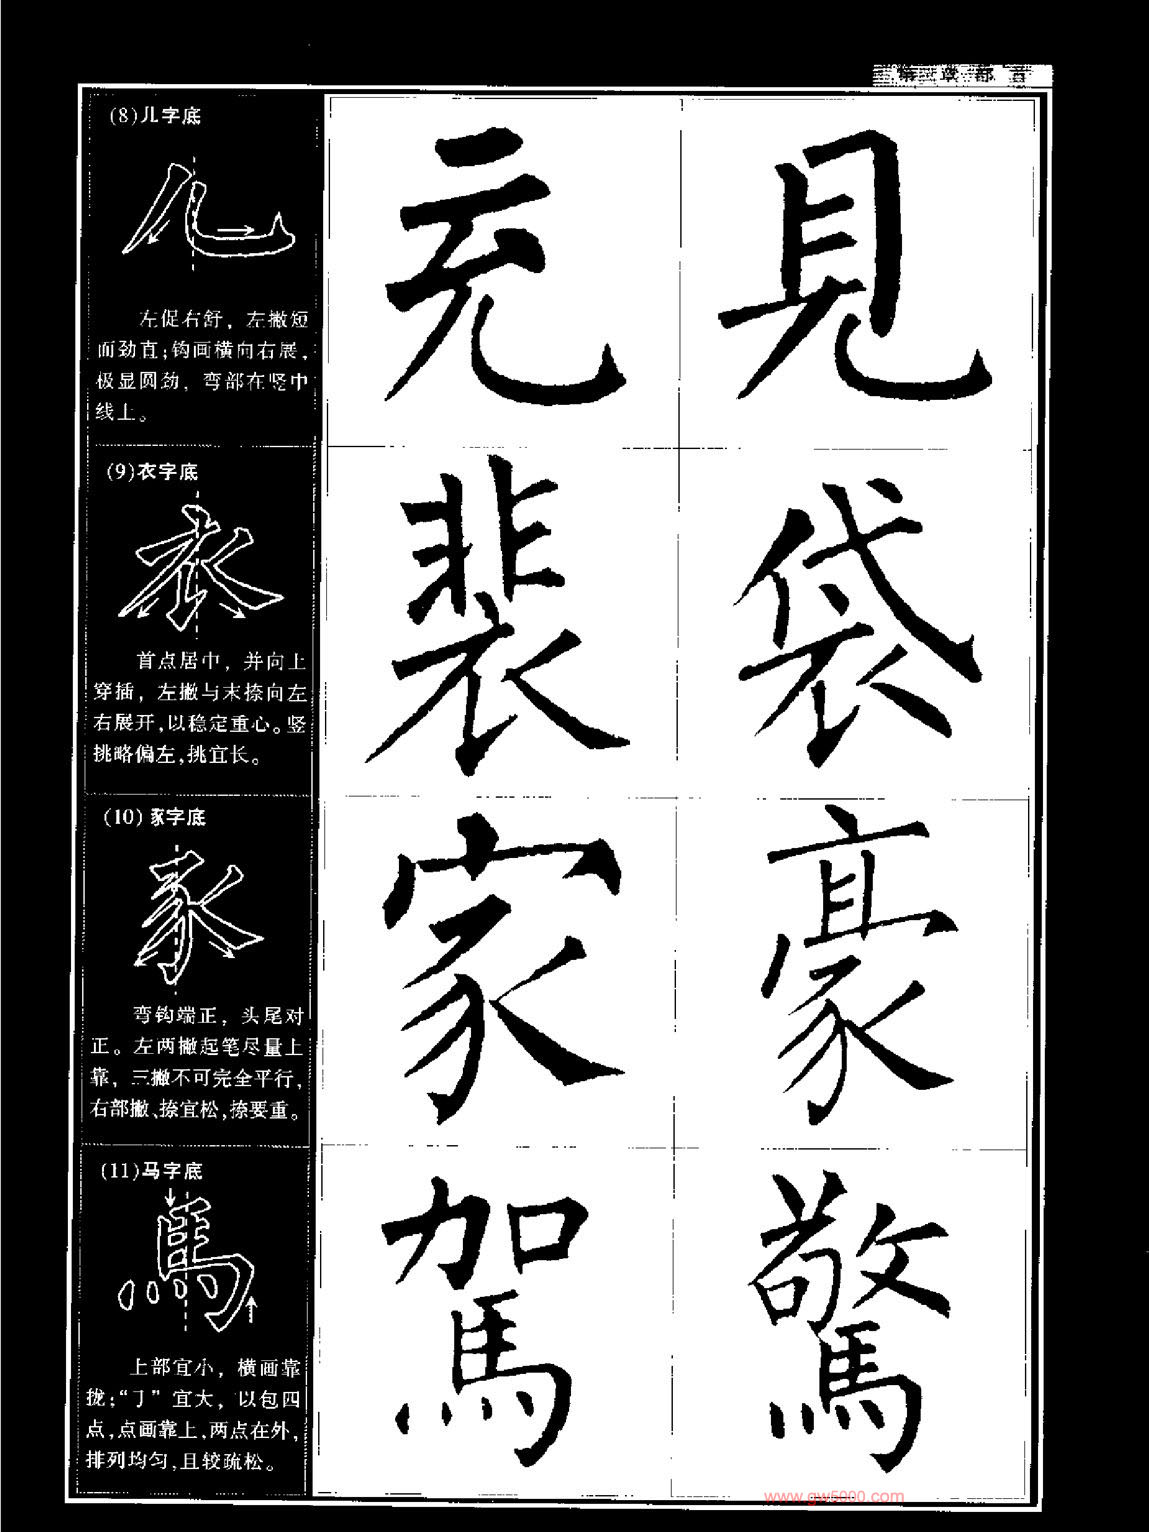 第二章 部首
(8)儿字底
儿
左促右舒，左撇短
而劲直；钩画横向右展，
极显圆劲，弯部在竖中
线上。
充 見
(9)衣字底
衣
首点居中，并向上
穿插，左撇与末捺向左
右展开，以稳定重心。竖
挑略偏左，挑宜长。
裴 袋
(10)豕字底
豕
弯钩端正，头尾对
正。左两撇起笔尽量上
靠，三撇不可完全平行，
右部撇、捺宜松，捺要重。
家 豪
(11)马字底
馬
上部宜小，横画靠
拢；“㇆”宜大，以包四
点，点画靠上，两点在外，
排列均匀，且较疏松。
駕 驚
www.gw5000.com